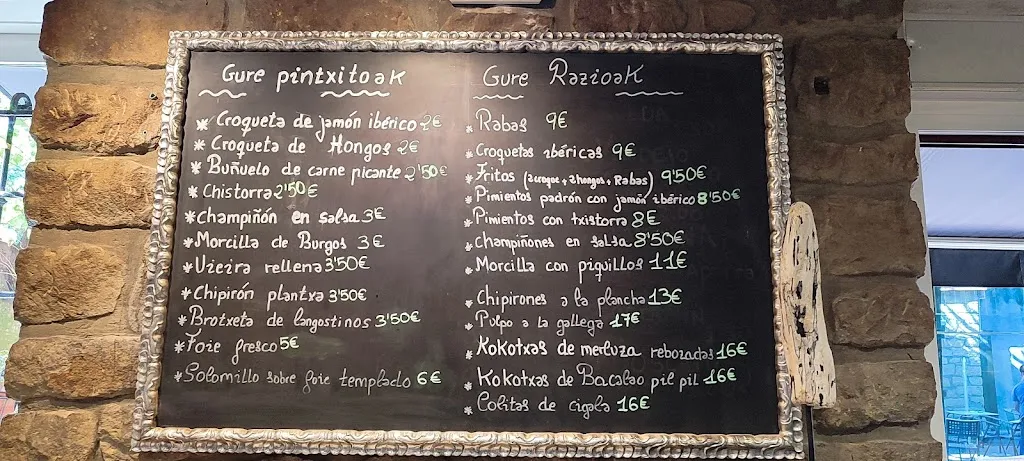 Gure pintxitoak
* Croqueta de jamón ibérico 2€
* Croqueta de Hongos 2€
* Buñuelo de carne picante 2'50€
* Chistorra 2'50€
* Champiñón en salsa 3€
* Morcilla de Burgos 3€
* Vieira rellena 3'50€
* Chipirón plantxa 3'50€
* Brotxeta de langostinos 3'50€
* Foie fresco 5€
* Solomillo sobre foie templado 6€
Gure Razioak
* Rabas 9€
* Croquetas ibéricas 9€
* Fritos (2croque + 2hongos + Rabas) 9'50€
* Pimientos padrón con jamón ibérico 8'50€
* Pimientos con txistorra 8€
* Champiñones en salsa 8'50€
* Morcilla con piquillos 11€
* Chipirones a la plancha 13€
* Pulpo a la gallega 17€
* Kokotxas de merluza rebozadas 16€
* Kokotxas de Bacalao pil pil 16€
* Colitas de cigala 16€